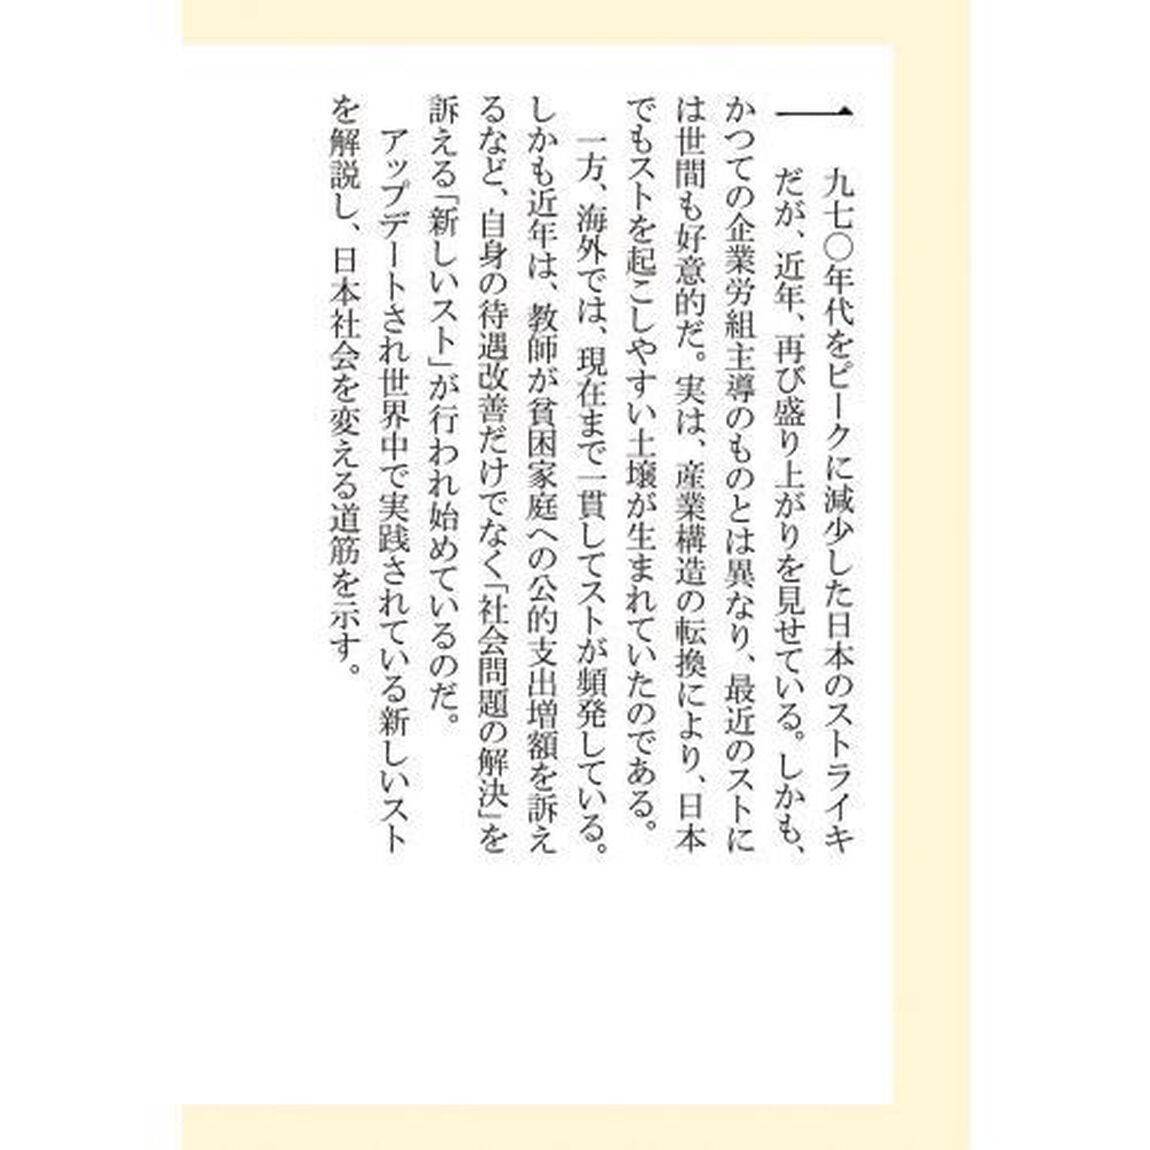 一九七〇年代をピークに減少した日本のストライキ
だが、近年、再び盛り上がりを見せている。しかも、
かつての企業労組主導のものとは異なり、最近のストに
は世間も好意的だ。実は、産業構造の転換により、日本
でもストを起こしやすい土壌が生まれていたのである。
一方、海外では、現在まで一貫してストが頻発している。
しかも近年は、教師が貧困家庭への公的支出増額を訴え
るなど、自身の待遇改善だけでなく「社会問題の解決」を
訴える「新しいスト」が行われ始めているのだ。
アップデートされ世界中で実践されている新しいスト
を解説し、日本社会を変える道筋を示す。